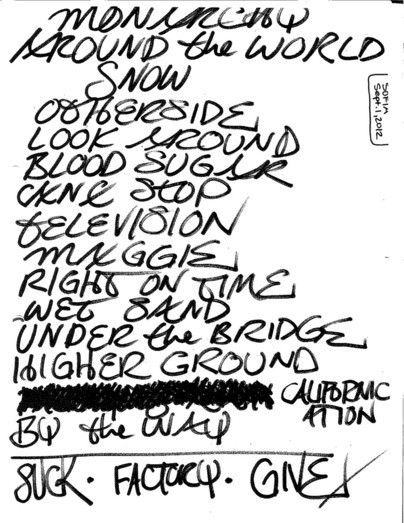 MONARCHY
AROUND the WORLD
SNOW
SOFIA
Sept. 1, 2012
OTHERSIDE
LOOK AROUND
BLOOD SUGAR
CAN'T STOP
TELEVISION
MAGGIE
RIGHT ON TIME
WET SAND
UNDER the BRIDGE
HIGHER GROUND
CALIFORNIC
ATION
BY the WAY
SUCK · FACTORY · GIVE